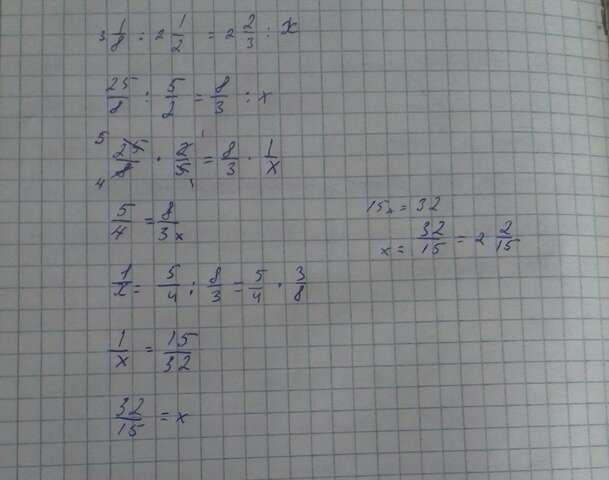 3 1/8 : 2 1/2 = 2 2/3 : x
25/8 : 5/2 = 8/3 : x
5 25/8 4 · 1 2/5 1 = 8/3 · 1/x
5/4 = 8/3x
1/x = 5/4 : 8/3 = 5/4 · 3/8
1/x = 15/32
32/15 = x
15x = 32
x = 32/15 = 2 2/15